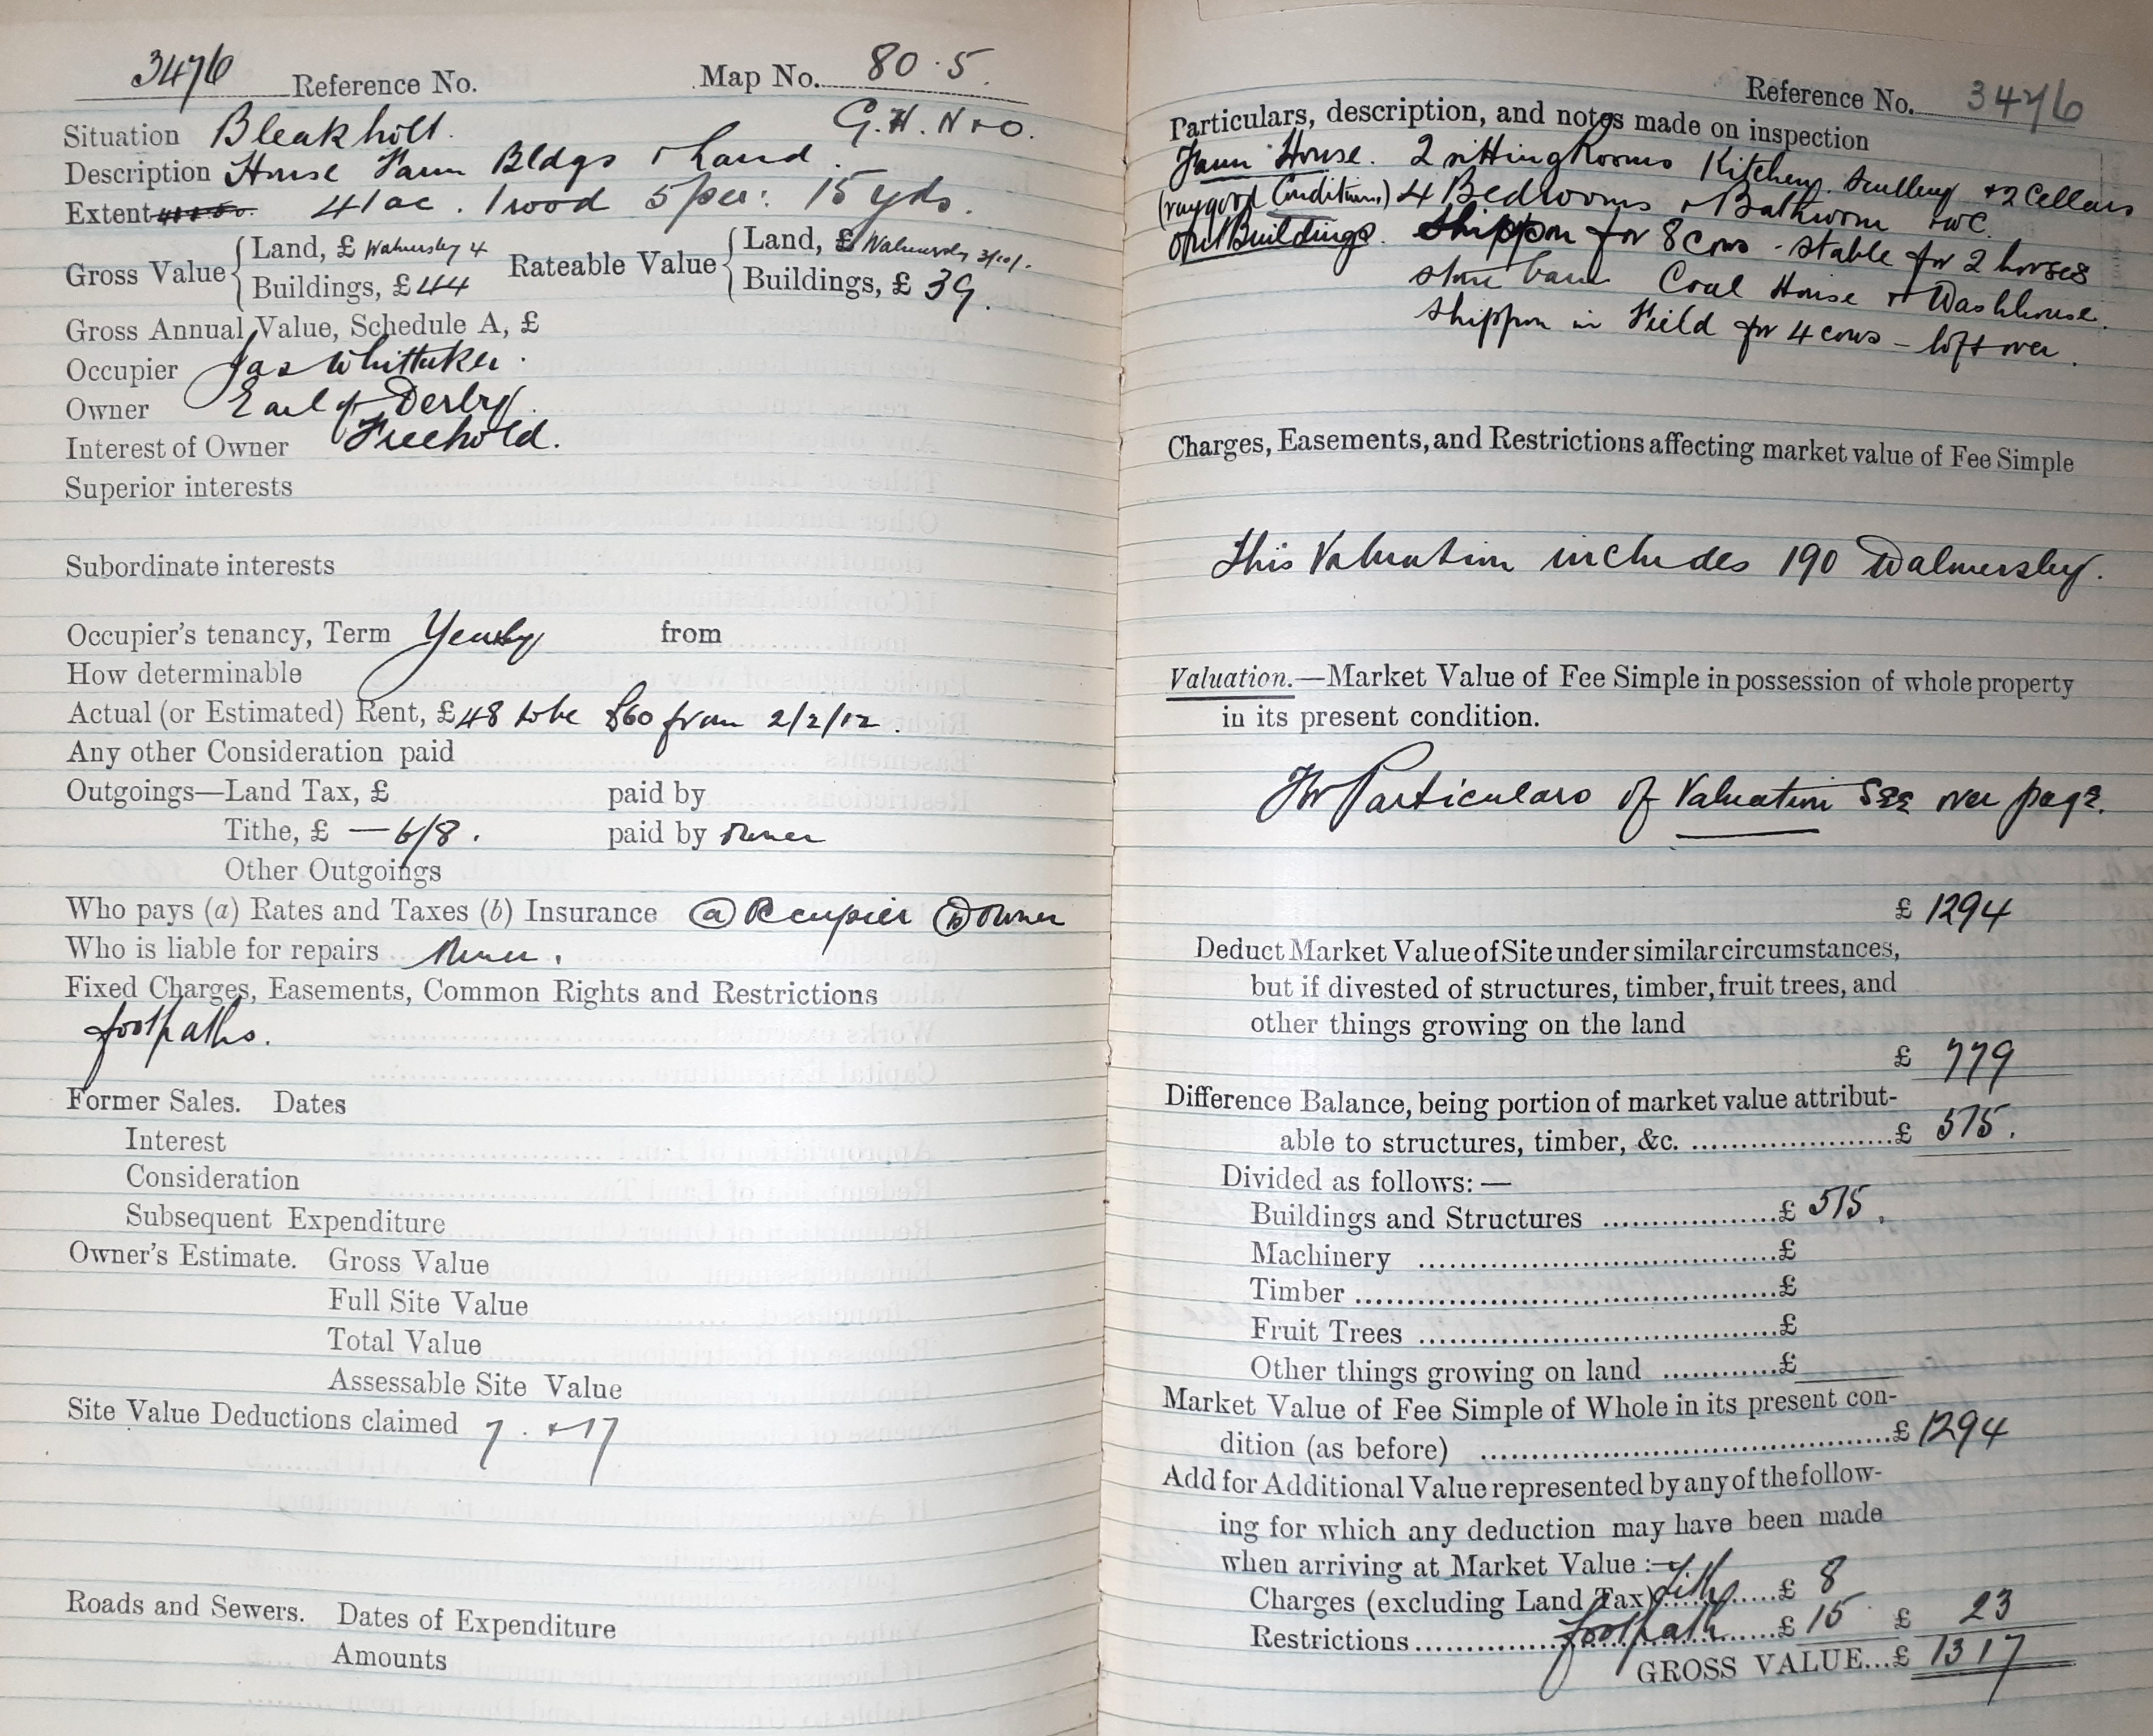 3476 Reference No. Map No. 80.5.
Situation Bleakholt. G.H. N+O.
Description House Farm Bldgs + Land.
Extent 41ac. 1rood 5per: 15yds.
Gross Value { Land, £ Walmersley 4 Rateable Value { Land, £ Walmersley 3/10/.
Buildings, £44 Buildings, £ 39.
Gross Annual Value, Schedule A, £
Occupier Jas Whittaker.
Owner Earl of Derby.
Interest of Owner Freehold.
Superior interests
Subordinate interests
Occupier's tenancy, Term Yearly from
How determinable
Actual (or Estimated) Rent, £48 to be £60 from 2/2/12.
Any other Consideration paid
Outgoings—Land Tax, £ paid by
Tithe, £ —6/8. paid by owner
Other Outgoings
Who pays (a) Rates and Taxes (b) Insurance (a) Occupier (b) Owner
Who is liable for repairs Owner.
Fixed Charges, Easements, Common Rights and Restrictions
footpaths.
Former Sales. Dates
Interest
Consideration
Subsequent Expenditure
Owner's Estimate. Gross Value
Full Site Value
Total Value
Assessable Site Value
Site Value Deductions claimed 7. +17
Roads and Sewers. Dates of Expenditure
Amounts
Reference No. 3476
Particulars, description, and notes made on inspection
Farm House. 2 sitting Rooms Kitchen, Scullery + 2 Cellars
(very good Condition) 4 Bedrooms + Bathroom + WC.
Out Buildings. Shippon for 8 cows - stable for 2 horses
store barn Coal House + Washhouse.
Shippon in Field for 4 cows – loft over.
Charges, Easements, and Restrictions affecting market value of Fee Simple
This Valuation includes 190 Walmersley.
Valuation.—Market Value of Fee Simple in possession of whole property
in its present condition.
For Particulars of Valuation See over page.
£ 1294
Deduct Market Value of Site under similar circumstances,
but if divested of structures, timber, fruit trees, and
other things growing on the land
£ 779
Difference Balance, being portion of market value attribut-
able to structures, timber, &c. .....................£ 515.
Divided as follows: —
Buildings and Structures ..................£ 515.
Machinery .....................................£
Timber ...........................................£
Fruit Trees .....................................£
Other things growing on land ...........£
Market Value of Fee Simple of Whole in its present con-
dition (as before) ........................................£ 1294
Add for Additional Value represented by any of the follow-
ing for which any deduction may have been made
when arriving at Market Value :—
Charges (excluding Land Tax) Tithe ....£ 8
Restrictions ............footpath............£ 15 £ 23
GROSS VALUE...£ 1317